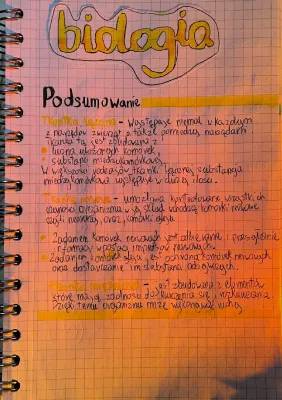 biologia
Podsumowanie
Tkanka łączna - Występuje niemal w każdym
z narządów zwierząt a także pomiędzy narządami
tkanka ta jest zbudowana z:
luźno ułożonych komórek,
substancji międzykomórkowej
W większości rodzajów tkanki łącznej substancja
międzykomórkowa występuje w dużej ilości.
Tkanka nerwowa - umożliwia kontrolowanie wszystkich
czynności organizmu w jej skład wchodzą komórki nerwowe
czyli neurony, oraz komórki glejowe
Zadaniem komórek nerwowych jest odbieranie i przesyłanie
informacji w postaci impulsów nerwowych.
Zadaniem komórek gleju jest ochrona komórek nerwowych
oraz dostarczanie im substancji odżywczych.
Tkanka mięśniowa - jest zbudowana z elementów
które mają zdolność do kurczenia się i rozkurczania
Dzięki temu organizm może wykonywać ruchy